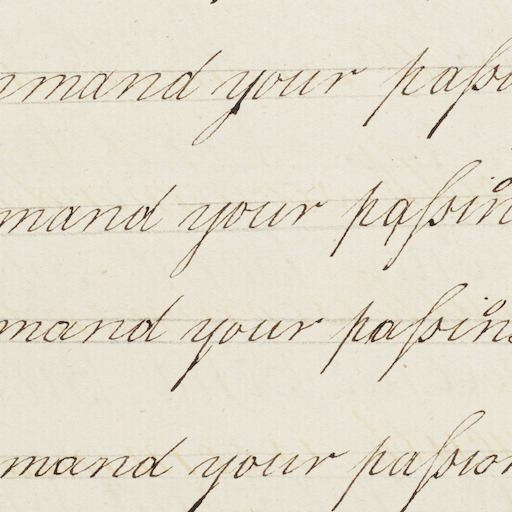 mmand your paſsi
mand your paſsin
mand your paſsins
mand your paſsion